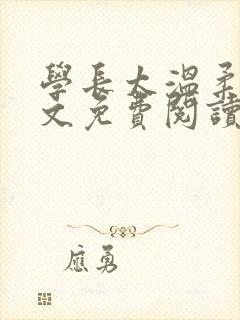 學長太溫柔
文免費閱讀
應勇